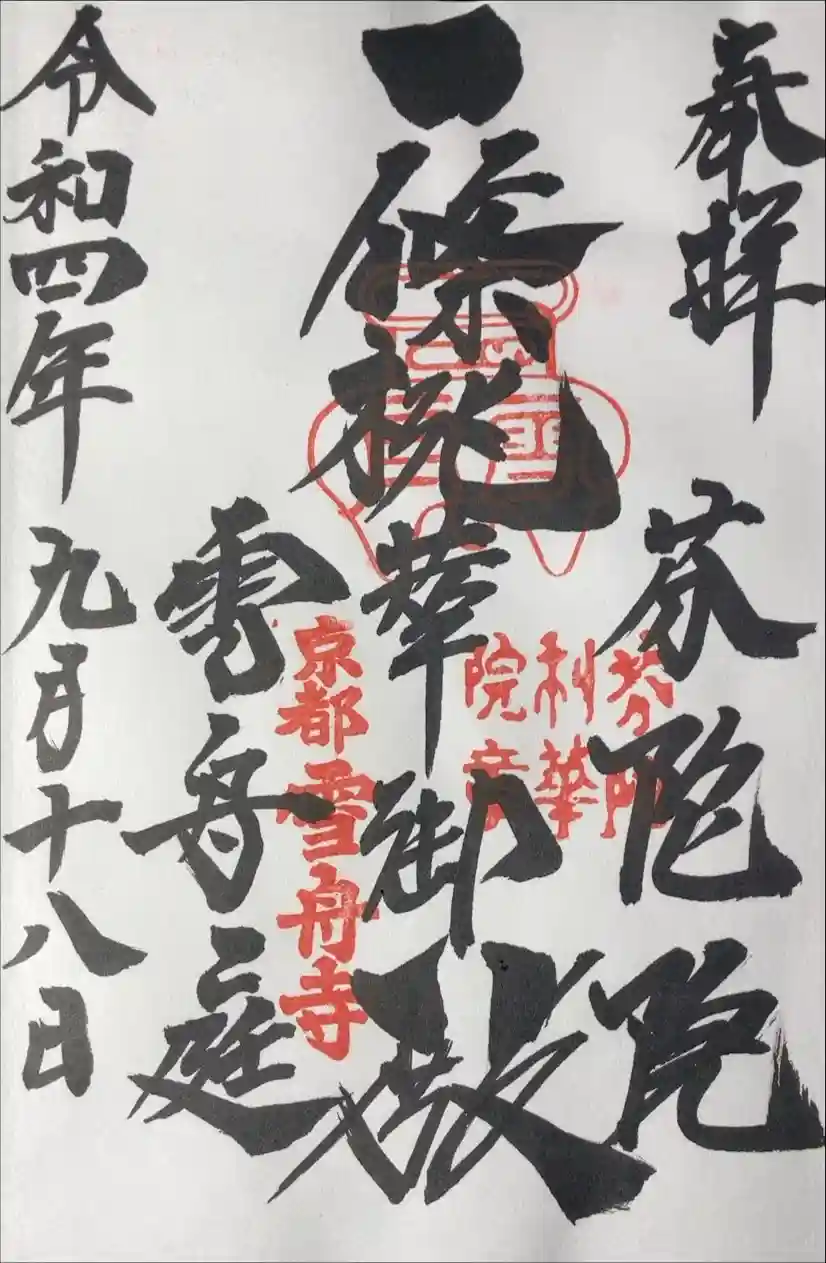 奉拝
芬陀院
一條桃華御殿
雪舟庭
令和四年九月十八日
芬陀
利華
院章
京都雪舟寺